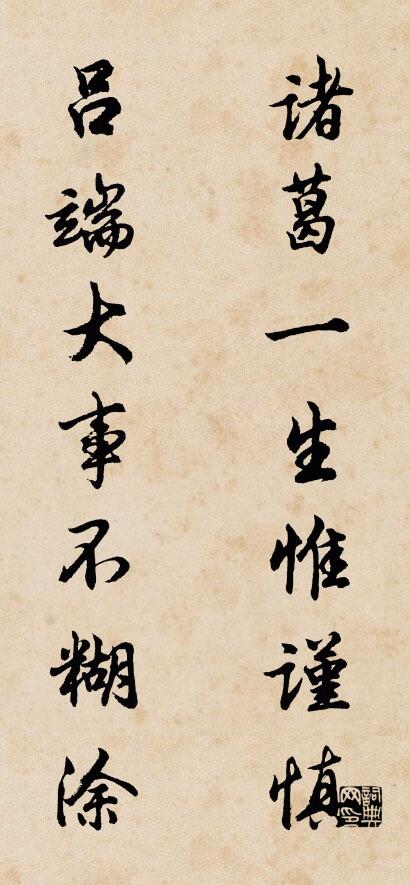 诸葛一生惟谨慎
吕端大事不糊涂
词典网印